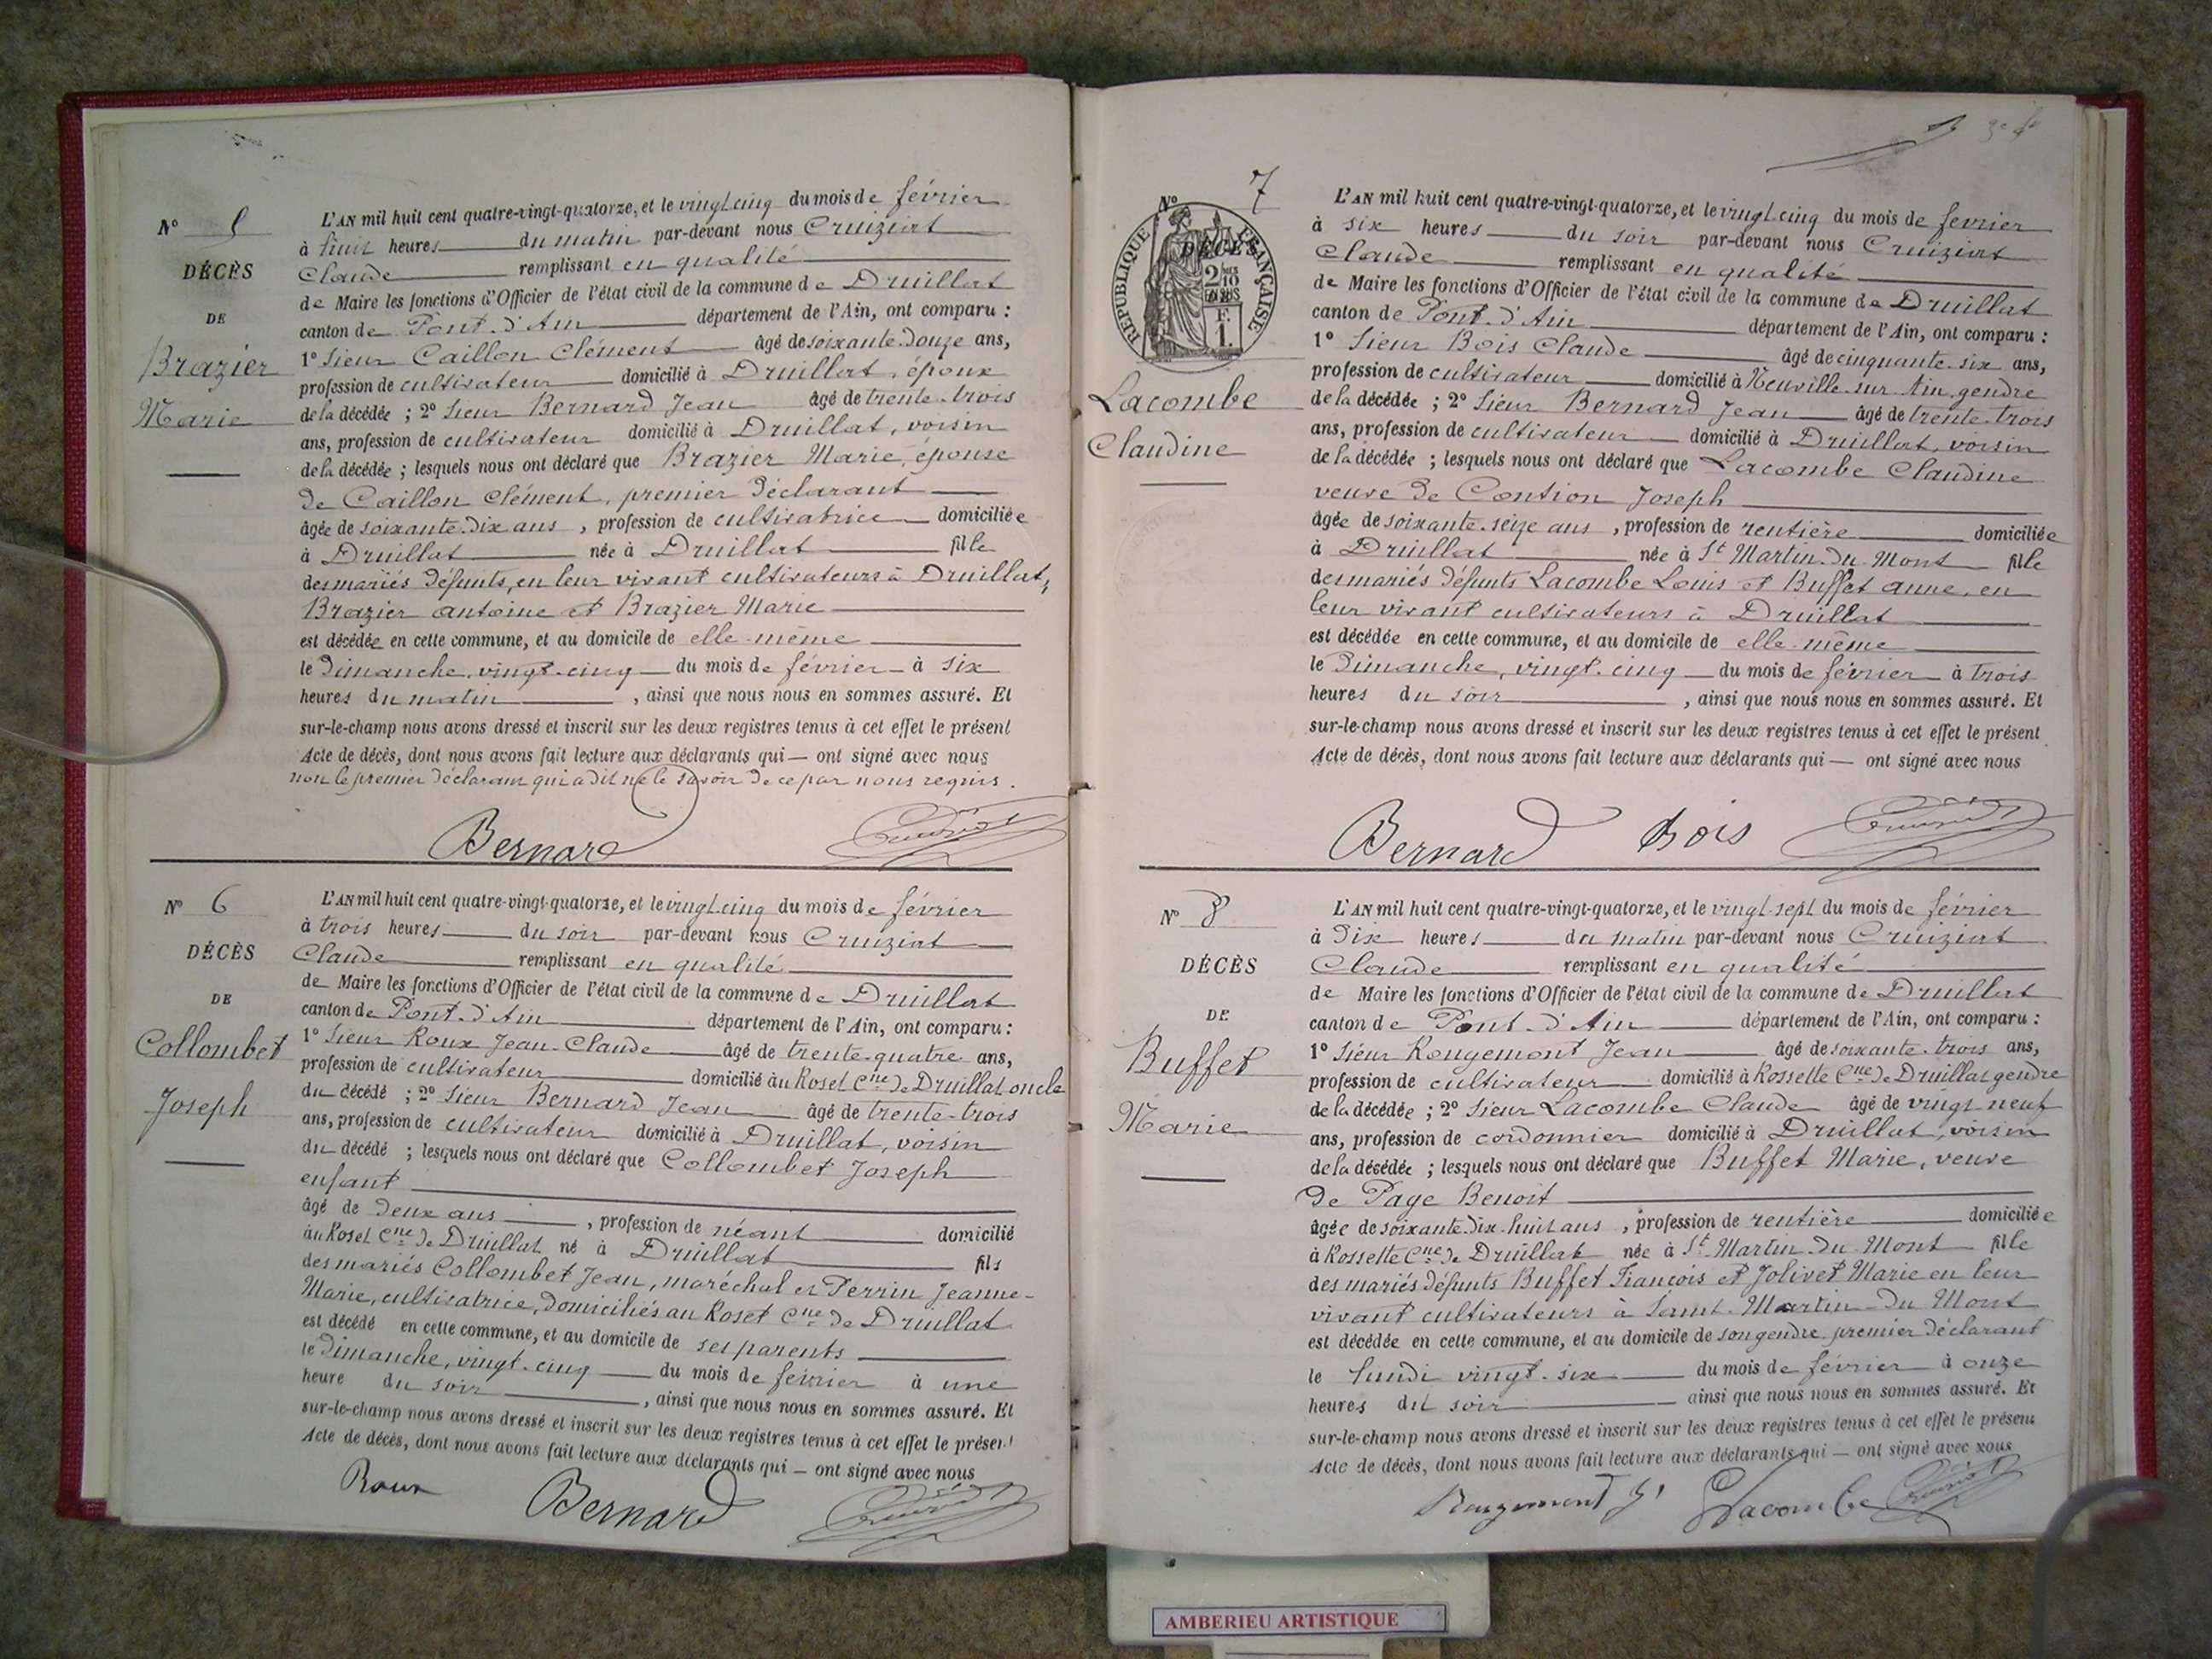 Nº 5
DÉCÈS
DE
Brazier
Marie
L'AN mil huit cent quatre-vingt-quatorze, et le vingt cinq du mois de février
à huit heures du matin par-devant nous Cruiziat
Claude remplissant en qualité
de Maire les fonctions d'Officier de l'état civil de la commune de Druillat
canton de Pont-d'Ain département de l'Ain, ont comparu :
1º Sieur Caillon Clément âgé de soixante-douze ans,
profession de cultivateur domicilié à Druillat, époux
de la décédée ; 2º Sieur Bernard Jean âgé de trente-trois
ans, profession de cultivateur domicilié à Druillat, voisin
de la décédée ; lesquels nous ont déclaré que Brazier Marie, épouse
de Caillon Clément, premier déclarant
âgée de soixante-dix ans, profession de cultivatrice domiciliée
à Druillat née à Druillat fille
des mariés défunts, en leur vivant cultivateurs à Druillat,
Brazier Antoine et Brazier Marie
est décédée en cette commune, et au domicile de elle-même
le Dimanche, vingt-cinq du mois de février à six
heures du matin, ainsi que nous nous en sommes assuré. Et
sur-le-champ nous avons dressé et inscrit sur les deux registres tenus à cet effet le présent
Acte de décès, dont nous avons fait lecture aux déclarants qui — ont signé avec nous
non le premier déclarant qui a dit ne le savoir de ce par nous requis.
Bernard Cruiziat
Nº 6
DÉCÈS
DE
Collombet
Joseph
L'AN mil huit cent quatre-vingt-quatorze, et le vingt cinq du mois de février
à trois heures du soir par-devant nous Cruiziat
Claude remplissant en qualité
de Maire les fonctions d'Officier de l'état civil de la commune de Druillat
canton de Pont-d'Ain département de l'Ain, ont comparu :
1º Sieur Roux Jean-Claude âgé de trente-quatre ans,
profession de cultivateur domicilié au Roset Cne de Druillat oncle
du décédé ; 2º Sieur Bernard Jean âgé de trente-trois
ans, profession de cultivateur domicilié à Druillat, voisin
du décédé ; lesquels nous ont déclaré que Collombet Joseph
enfant
âgé de deux ans, profession de néant domicilié
au Roset Cne de Druillat né à Druillat fils
des mariés Collombet Jean, maréchal et Perrin Jeanne-
Marie, cultivatrice, domiciliés au Roset Cne de Druillat
est décédé en cette commune, et au domicile de ses parents
le Dimanche, vingt-cinq du mois de février à une
heure du soir, ainsi que nous nous en sommes assuré. Et
sur-le-champ nous avons dressé et inscrit sur les deux registres tenus à cet effet le présent
Acte de décès, dont nous avons fait lecture aux déclarants qui — ont signé avec nous
Roux Bernard Cruiziat
Nº 7
RÉPUBLIQUE FRANÇAISE
DÉCÈS
2/10 EN SUS
F. 1.
Lacombe
Claudine
L'AN mil huit cent quatre-vingt-quatorze, et le vingt cinq du mois de février
à six heures du soir par-devant nous Cruiziat
Claude remplissant en qualité
de Maire les fonctions d'Officier de l'état civil de la commune de Druillat
canton de Pont-d'Ain département de l'Ain, ont comparu :
1º Sieur Bois Claude âgé de cinquante-six ans,
profession de cultivateur domicilié à Neuville-sur-Ain, gendre
de la décédée ; 2º Sieur Bernard Jean âgé de trente-trois
ans, profession de cultivateur domicilié à Druillat, voisin
de la décédée ; lesquels nous ont déclaré que Lacombe Claudine
veuve de Contion Joseph
âgée de soixante-seize ans, profession de rentière domiciliée
à Druillat née à St Martin-du-Mont fille
des mariés défunts Lacombe Louis et Buffet Anne, en
leur vivant cultivateurs à Druillat
est décédée en cette commune, et au domicile de elle-même
le Dimanche, vingt-cinq du mois de février à trois
heures du soir, ainsi que nous nous en sommes assuré. Et
sur-le-champ nous avons dressé et inscrit sur les deux registres tenus à cet effet le présent
Acte de décès, dont nous avons fait lecture aux déclarants qui — ont signé avec nous
Bernard Bois Cruiziat
Nº 8
DÉCÈS
DE
Buffet
Marie
L'AN mil huit cent quatre-vingt-quatorze, et le vingt-sept du mois de février
à dix heures du matin par-devant nous Cruiziat
Claude remplissant en qualité
de Maire les fonctions d'Officier de l'état civil de la commune de Druillat
canton de Pont-d'Ain département de l'Ain, ont comparu :
1º Sieur Rougemont Jean âgé de soixante-trois ans,
profession de cultivateur domicilié à Rossette Cne de Druillat gendre
de la décédée ; 2º Sieur Lacombe Claude âgé de vingt neuf
ans, profession de cordonnier domicilié à Druillat, voisin
de la décédée ; lesquels nous ont déclaré que Buffet Marie, veuve
de Page Benoit
âgée de soixante-dix-huit ans, profession de rentière domiciliée
à Rossette Cne de Druillat née à St Martin-du-Mont fille
des mariés défunts Buffet François et Jolivet Marie en leur
vivant cultivateurs à Saint-Martin-du-Mont
est décédée en cette commune, et au domicile de son gendre premier déclarant
le lundi vingt-six du mois de février à onze
heures du soir ainsi que nous nous en sommes assuré. Et
sur-le-champ nous avons dressé et inscrit sur les deux registres tenus à cet effet le présent
Acte de décès, dont nous avons fait lecture aux déclarants qui — ont signé avec nous
Rougemont J. Lacombe Cruiziat
AMBERIEU ARTISTIQUE